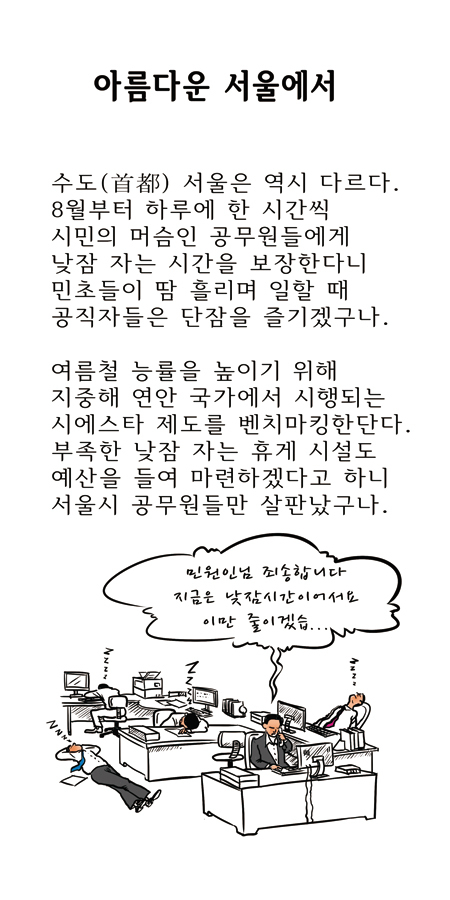 아름다운 서울에서
수도(首都) 서울은 역시 다르다.
8월부터 하루에 한 시간씩
시민의 머슴인 공무원들에게
낮잠 자는 시간을 보장한다니
민초들이 땀 흘리며 일할 때
공직자들은 단잠을 즐기겠구나.
여름철 능률을 높이기 위해
지중해 연안 국가에서 시행되는
시에스타 제도를 벤치마킹한단다.
부족한 낮잠 자는 휴게 시설도
예산을 들여 마련하겠다고 하니
서울시 공무원들만 살판났구나.
민원인님 죄송합니다
지금은 낮잠시간이어서요
이만 줄이겠습...
zzzz
zzzz
zzzz
zzzz